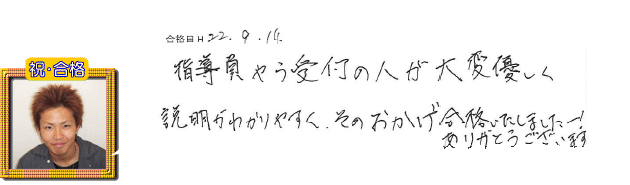 合格日H22.9.14.
祝・合格
指導員やう受付の人が大変優しく
説明がわかりやすく、そのおかげ合格いたしましたー!
ありがとうございます